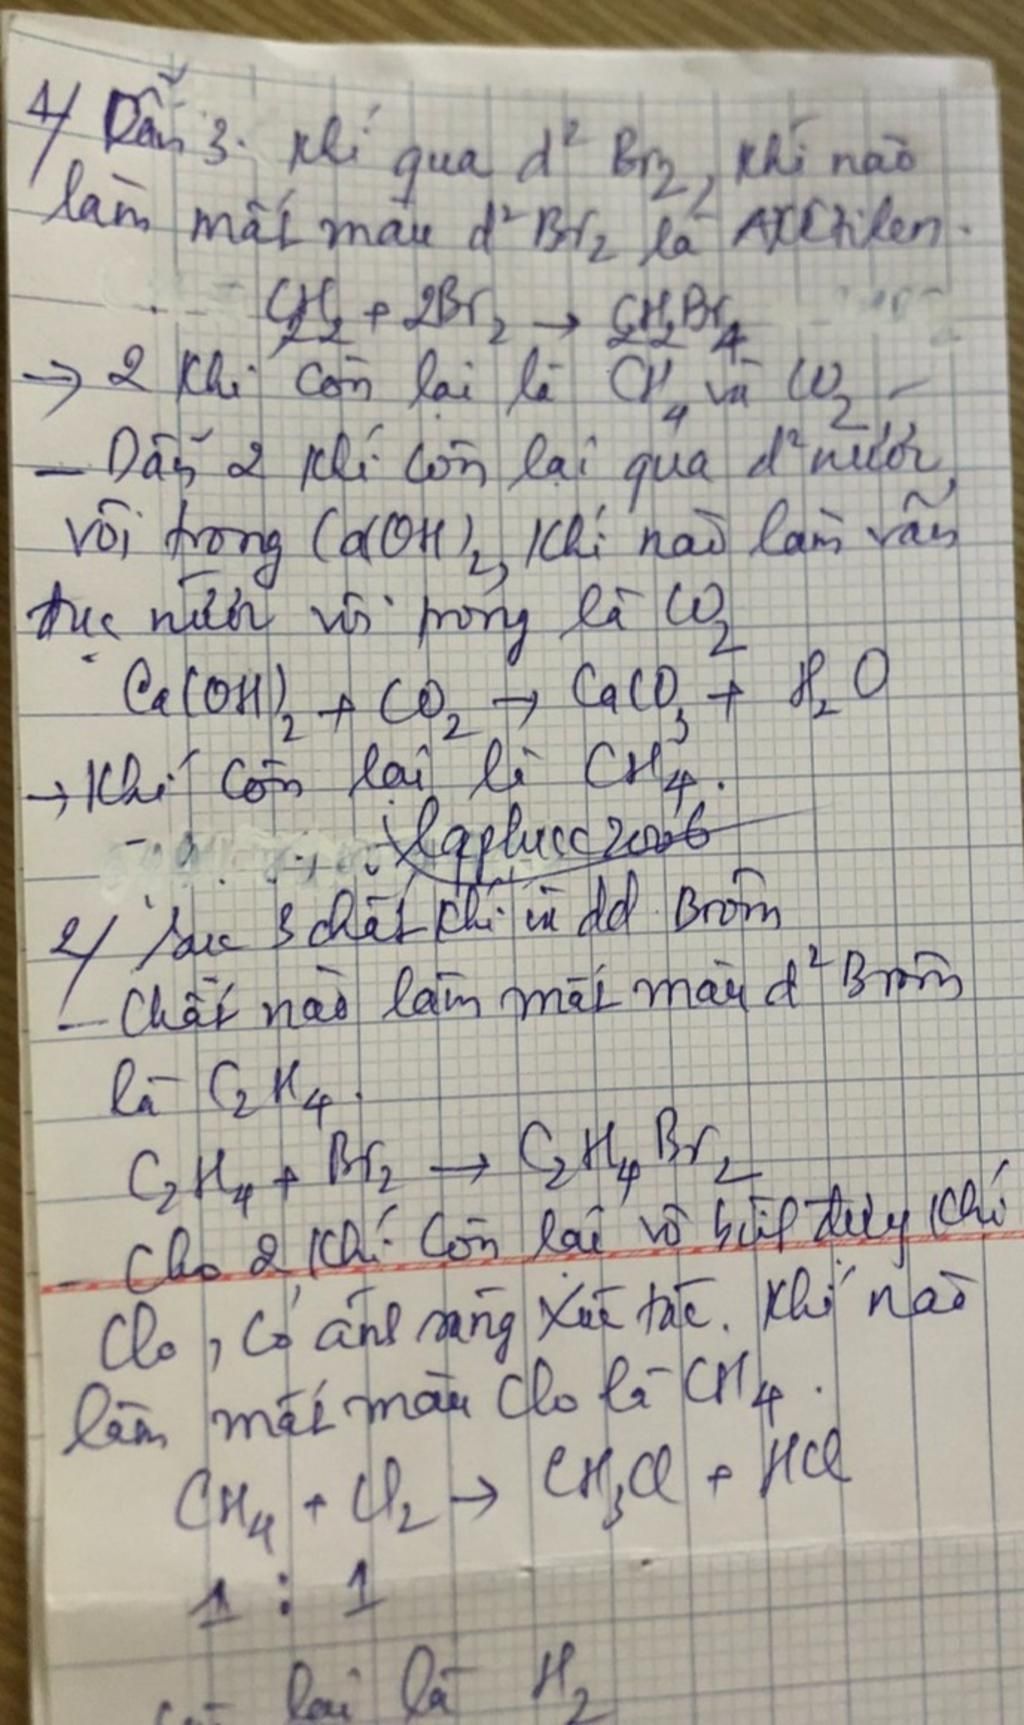 1/ Dẫn 3 khí qua d² Br₂, khí nào
làm mất màu d² Br₂ là Axetilen.
C₂H₂ + 2Br₂ → C₂H₂Br₄
→ 2 khí còn lại là CH₄ và CO₂
- Dẫn 2 khí còn lại qua d² nước
vôi trong Ca(OH)₂, khí nào làm vẩn
đục nước vôi trong là CO₂
Ca(OH)₂ + CO₂ → CaCO₃ + H₂O
→ Khí còn lại là CH₄.
laplucc2006
2/ Sục 3 chất khí vào dd Brôm
- Chất nào làm mất màu d² Brôm
là C₂H₄.
C₂H₄ + Br₂ → C₂H₄Br₂
- Cho 2 khí còn lại vô đựng khí
Clo, có ánh sáng xúc tác. Khí nào
làm mất màu Clo là CH₄.
CH₄ + Cl₂ → CH₃Cl + HCl
1 : 1
lại là H₂